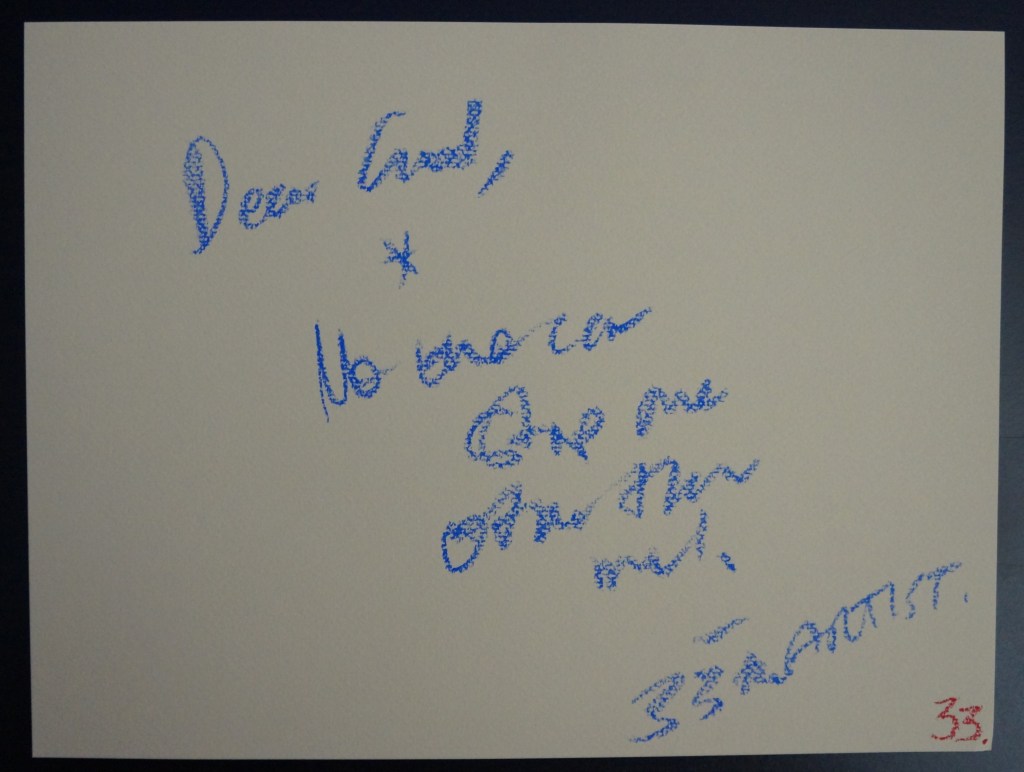 Dear God,
*
No one can
me
other than
me!.
33 ARTIST.
33.